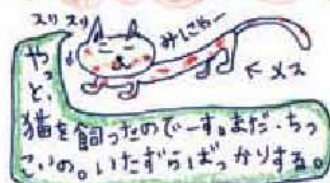 スリスリ
みしにゃー
←メス
やっと、
猫を飼ったのでーす。まだ、ちっ
こいの。いたずらばっかりする。